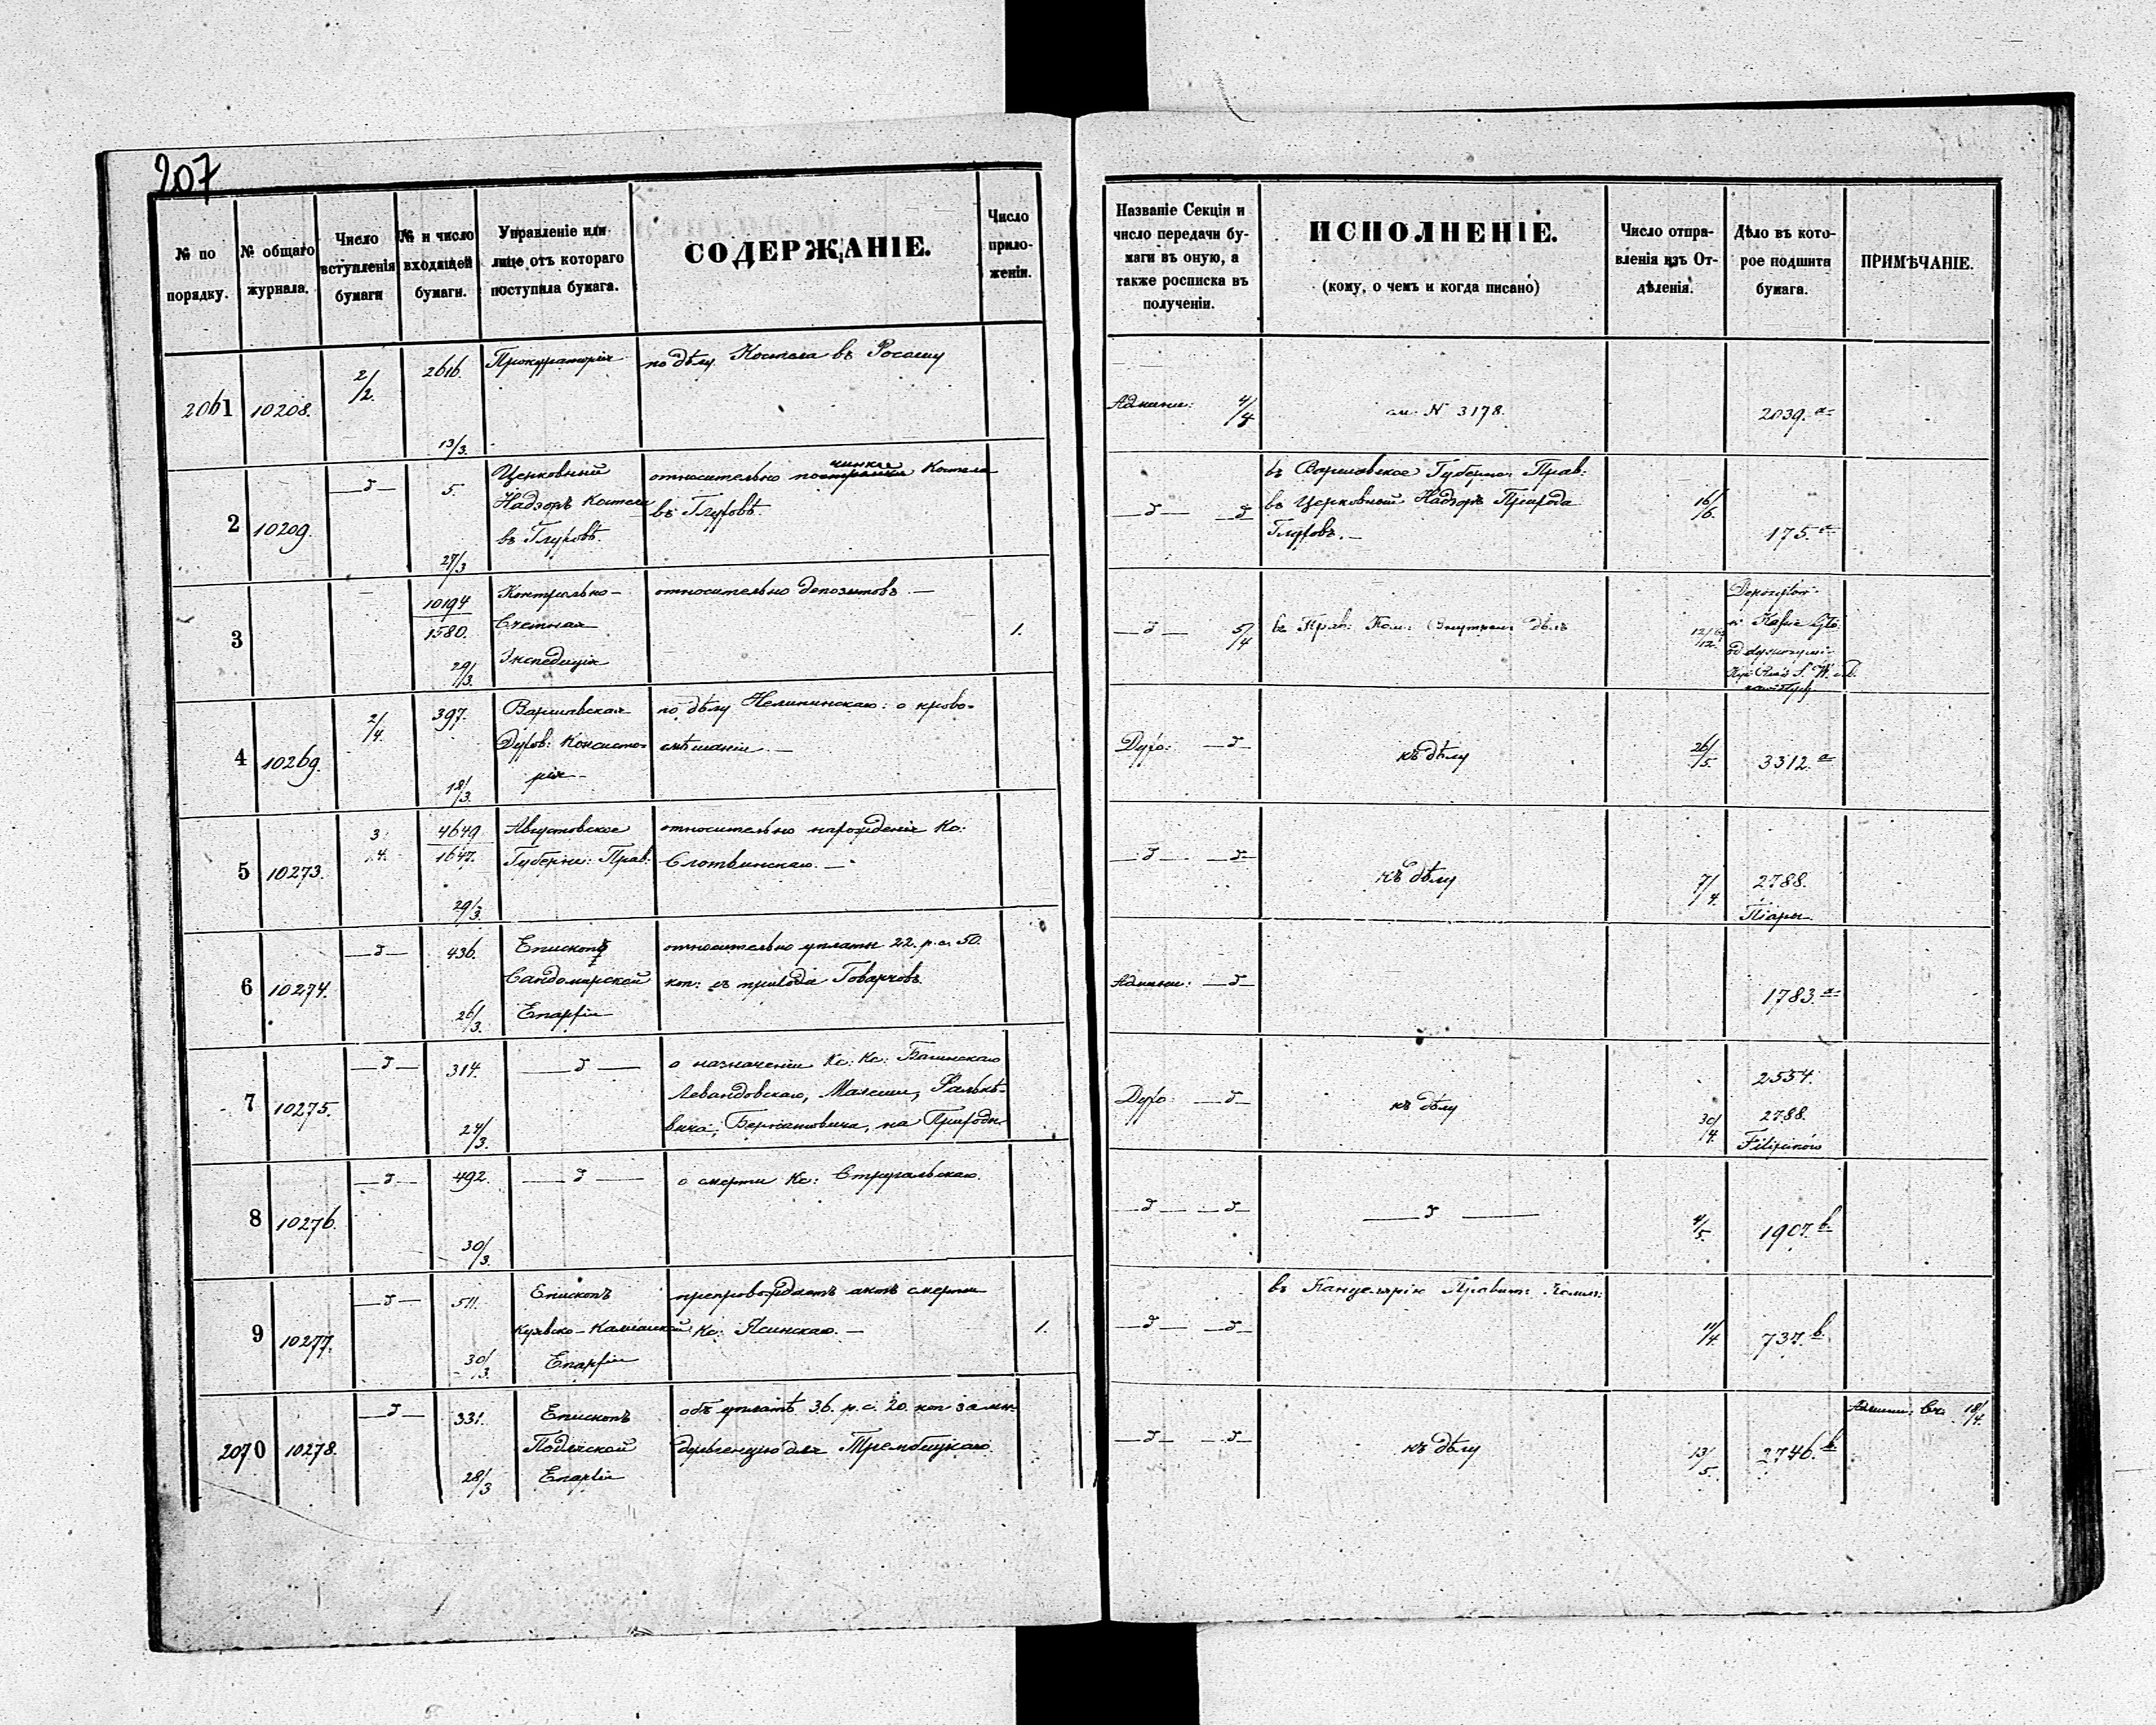 207
№ по порядку.
№ общаго журнала.
Число вступленія бумаги
№ и число входящей бумаги.
Управленіе или лице отъ котораго поступила бумага.
СОДЕРЖАНІЕ.
Число приложеніи.
Названіе Секціи и число передачи бумаги въ оную, а также росписка въ полученіи.
ИСПОЛНЕНІЕ.
(кому, о чемъ и когда писано)
Число отправленія изъ Отдѣленія.
Дѣло въ которое подшита бумага.
ПРИМѢЧАНІЕ.
2061 10208. 2/2. 2616. 13/3. Прокураторія
по дѣлу Костела въ Росошу
Админи: 4/4 см. N 3178. 2039. a
2 10209. 5. 27/3
Церковный
Надзоръ Костела
въ Глуховѣ.
относительно починки Костела
въ Глуховѣ.
въ Варшавское Губерн: Прав:
въ Церковный Надзоръ Прихода
Глуховъ.
16/6. 175. a
3 10194 1580. 29/3.
Контрольно-
Счетная
Экспедиція
относительно депозитовъ.
1. 5/4
въ Прав: Ком: Внутрен: Дѣлъ
4 10269. 2/4. 397. 18/3.
Варшавская
Духов: Консисто-
рія
по дѣлу о крово-
смѣшаніи
Духо: къ дѣлу 26/5. 3312. a
5 10273. 3/4. 4649 1647. 29/3.
Августовское
Губерн: Прав:
относительно нахожденія Кс:
Слотвинскаго.
къ дѣлу 7/4. 2788.
Піары
6 10274. 436. 26/3.
Епископъ
Сандомирской
Епархіи
относительно уплаты 22. р. с. 50.
коп: съ прихода Говарчовъ.
Админи: 1783. a
7 10275. 314. 24/3.
о назначеніи Кс: Кс:
Левандовскаго,
на Приходы
Духо: къ дѣлу 30/4. 2534.
2788.
Filipinów
8 10276. 492. 30/3.
о смерти Кс: Стругальскаго.
4/5. 1907. b
9 10277. 511. 30/3.
Епископъ
Куявско-Калишской
Епархіи
препровождаетъ актъ смерти
Кс: Ясинскаго.
1.
въ Канцелярію Правит: Комми:
11/4. 737. b
2070 10278. 331. 28/3
Епископъ
Подляской
Епархіи
объ уплатѣ 36. р. с. 20. коп за
для Трембицкаго.
къ дѣлу 13/5. 2746. b
Админи: Сек: 18/4.